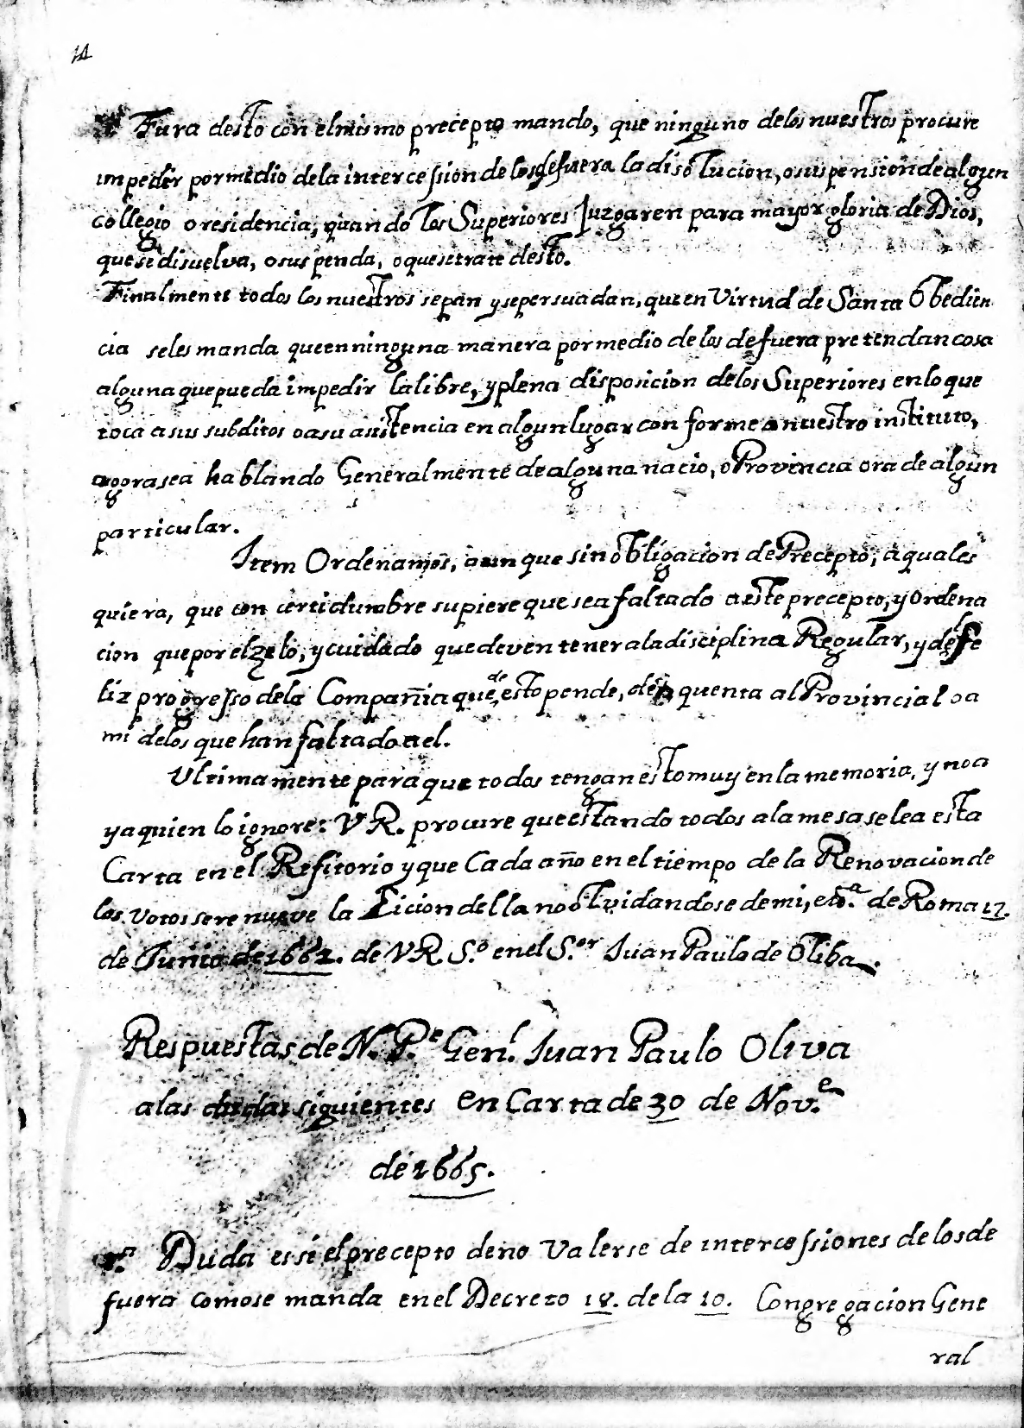 14
Fura desto con el mismo precepto mando, que ninguno delos nuestros procure
impedir por medio dela intercession de los defuera la disolucion, o suspension de algun
collegio o residencia, quando los Superiores Juzgaren para mayor gloria de Dios,
que se disuelva, o suspenda, o que se trate desto.
Finalmente todos los nuestros sepan y se persuadan, que en Virtud de Santa Obedien
cia seles manda que en ninguna manera por medio de los defuera pretendan cosa
alguna que pueda impedir la libre, y plena disposicion delos Superiores en lo que
toca a sus subditos o a su asistencia en algun lugar conforme a nuestro instituto,
agora sea hablando Generalmente de alguna nacio, o Provincia ora de algun
particular.
Item Ordenamos, aunque sin obligacion de Precepto, a quales
quiera, que con certidumbre supiere que sea faltado a este precepto, y Ordena
cion que por el zelo, y cuidado que deven tener a la disciplina Regular, y del fe
liz progresso dela Compañia que de esto pende, den quenta al Provincial o a
mi delos que han faltado a el.
Ultimamente para que todos tengan esto muy en la memoria, y no a
ya quien lo ignore: V R. procure que estando todos a la mesa se lea esta
Carta en el Refitorio y que Cada año en el tiempo de la Renovacion de
los Votos se renueve la Licion della no olvidandose de mi, etc.ª de Roma 17.
de Junio de 1662. de V R. S.º en el S.or Juan Paulo de Oliba.
Respuestas de N. P.e Gen.l Juan Paulo Oliva
a las dudas siguientes en Carta de 30 de Nov.e
de 1665.
1.ª Duda es si el precepto de no Valerse de intercessiones de los de
fuera como se manda en el Decreto 18. de la 10. Congregacion Gene
ral